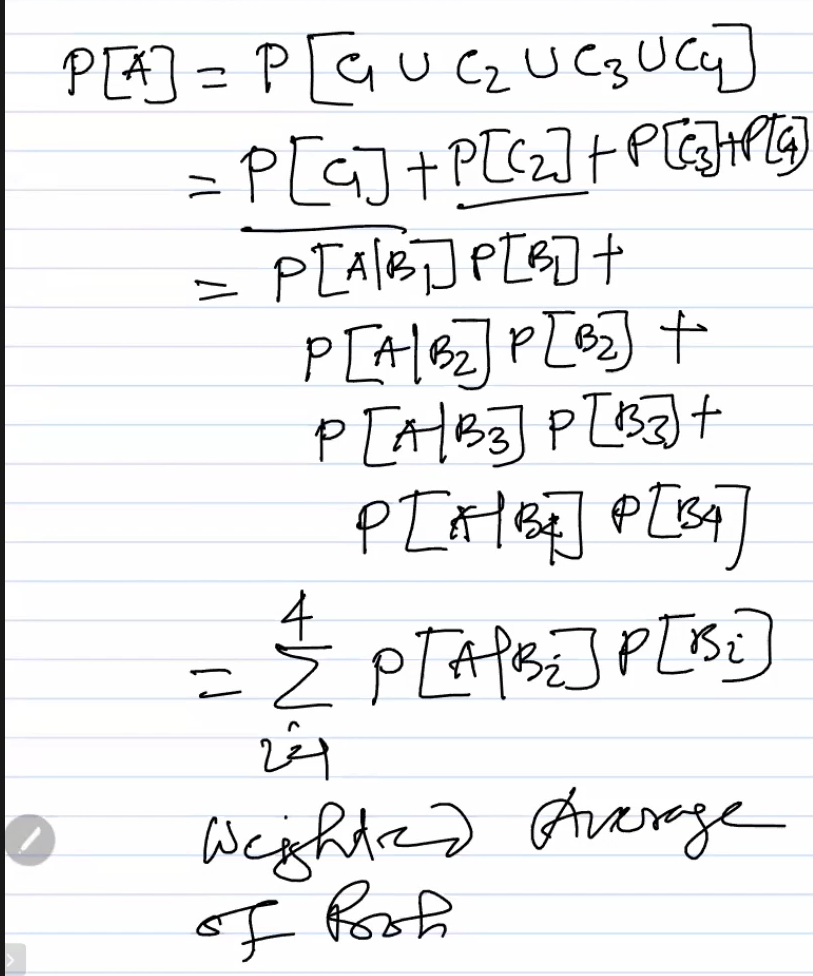 P[A] = P[C1 ∪ C2 ∪ C3 ∪ C4]
= P[C1] + P[C2] + P[C3] + P[C4]
= P[A|B1] P[B1] +
P[A|B2] P[B2] +
P[A|B3] P[B3] +
P[A|B4] P[B4]
= 4∑i=1 P[A|Bi] P[Bi]
Weighted Average
of Prob